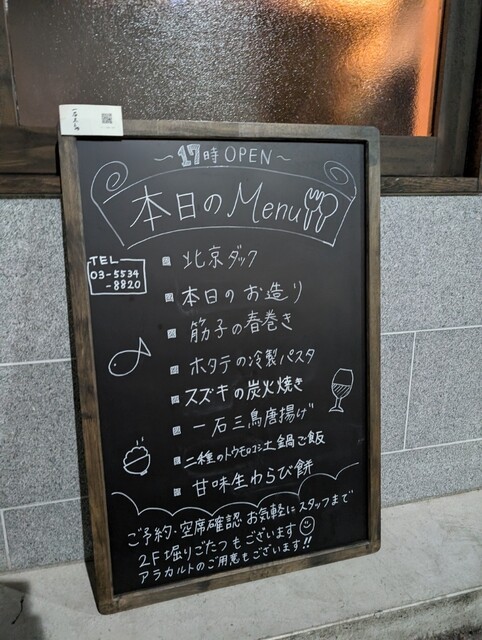 ~17時 OPEN~
本日のMenu
TEL
03-5534
-8820
北京ダック
本日の お造り
筋子の春巻き
ホタテの冷製パスタ
スズキの炭火焼き
一石三鳥唐揚げ
二種のトウモロコシ土鍋ご飯
甘味生わらび餅
ご予約・空席確認 お気軽にスタッフまで
2F 堀りごたつ もございます
アラカルトのご用意もございます!!